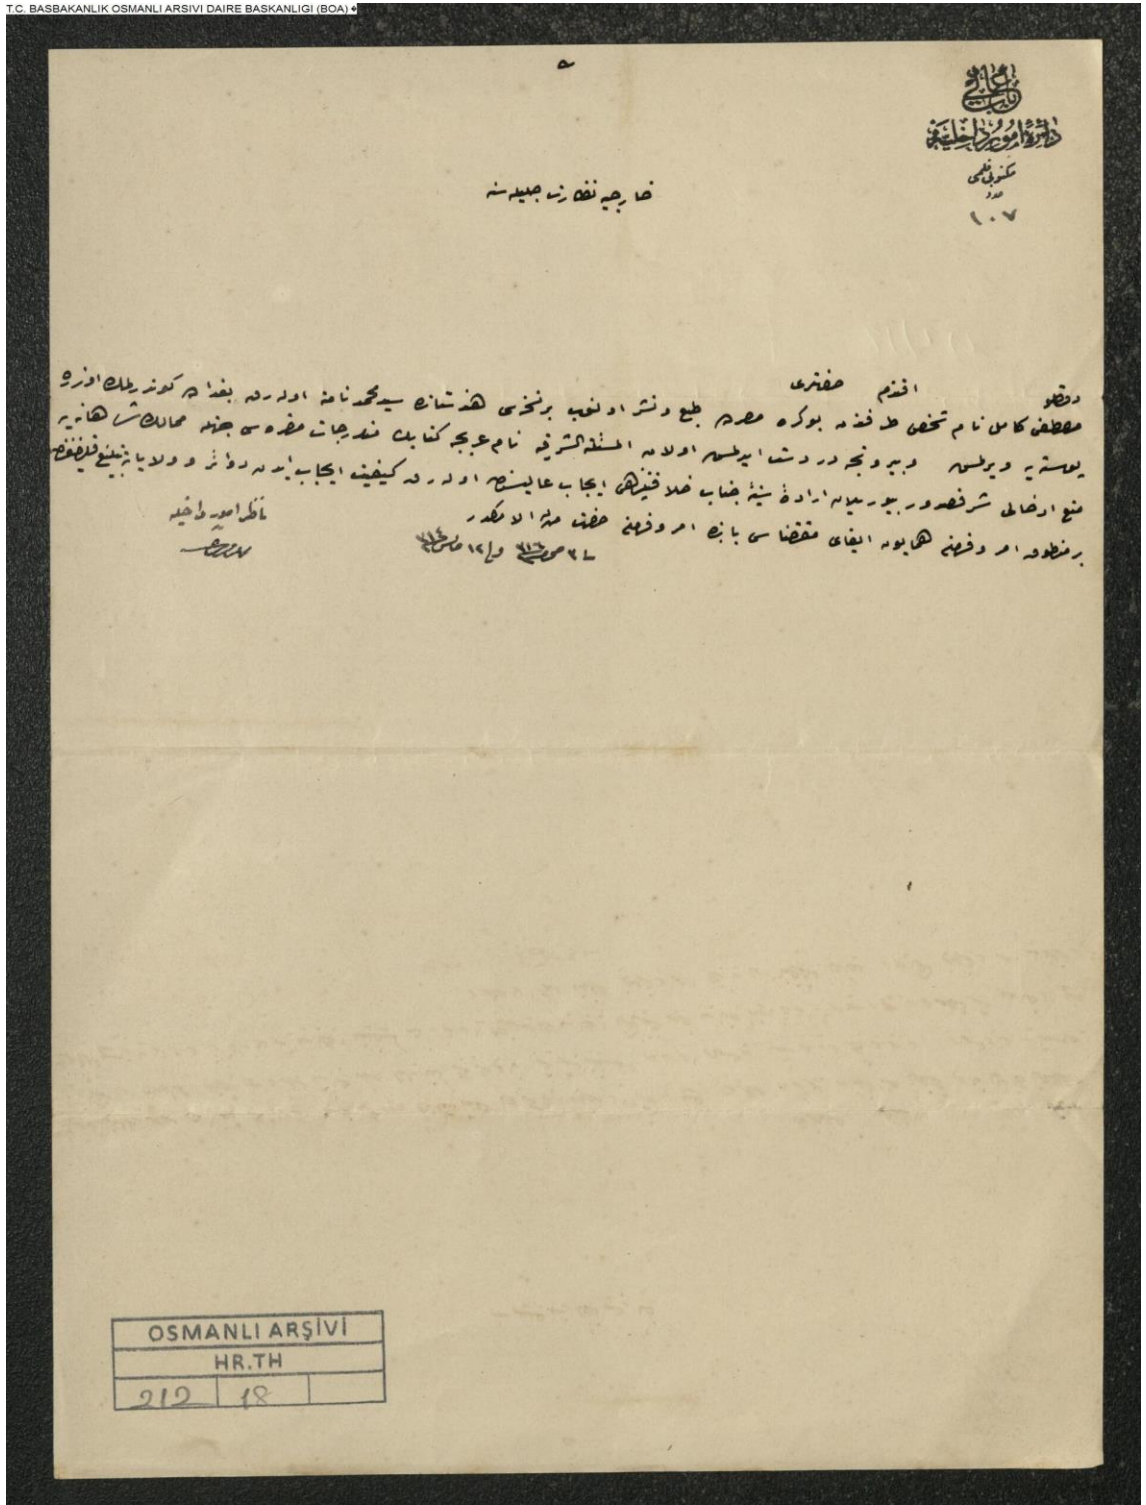 T.C. BASBAKANLIK OSMANLI ARSIVI DAIRE BASKANLIGI (BOA)
باب عالی
دائرهٔ امور داخلیه
مکتوبی قلمی
عدد
١٠٧
خارجیه نظارت جلیله سنه
دولتلو افندم حضرتلری
مصطفی کامل نام شخص طرفندن بوکره مصرده طبع و نشر اولنوب بر نسخه‌سی هندستانده سید محمد نامنه اوله‌رق بغداده کوندرلمك اوزره
پوسته‌یه ویرلمش و بیرونجه دردست ایدلمش اولان المسئلة الشرقیه نام عربجه کتابك مندرجات مضره‌سی جهتله ممالك شاهانه‌یه
منع ادخالی شرفصدور بیوریلان ارادهٔ سنیهٔ جناب خلافتپناهی ایجاب عالیسندن اوله‌رق کیفیت ایجاب ایدن دوائر و ولایاته تبلیغ قلنمغله
بر منطوق امر و فرمان همایون ایفای مقتضاسی بابنده امر و فرمان حضرت من له الامرکدر
ناظر امور داخلیه
OSMANLI ARŞİVİ
HR.TH
212 18